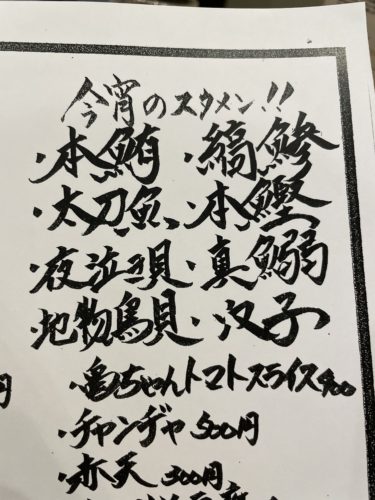 今宵のスタメン!!
・本鮪 ・縞鯵
・太刀魚 ・本鰹
・夜泣貝 ・真鰯
・地物鳥貝 ・汐子
・亀ちゃんトマトスライス400
・チャンヂャ 500円
・赤天 300円
円